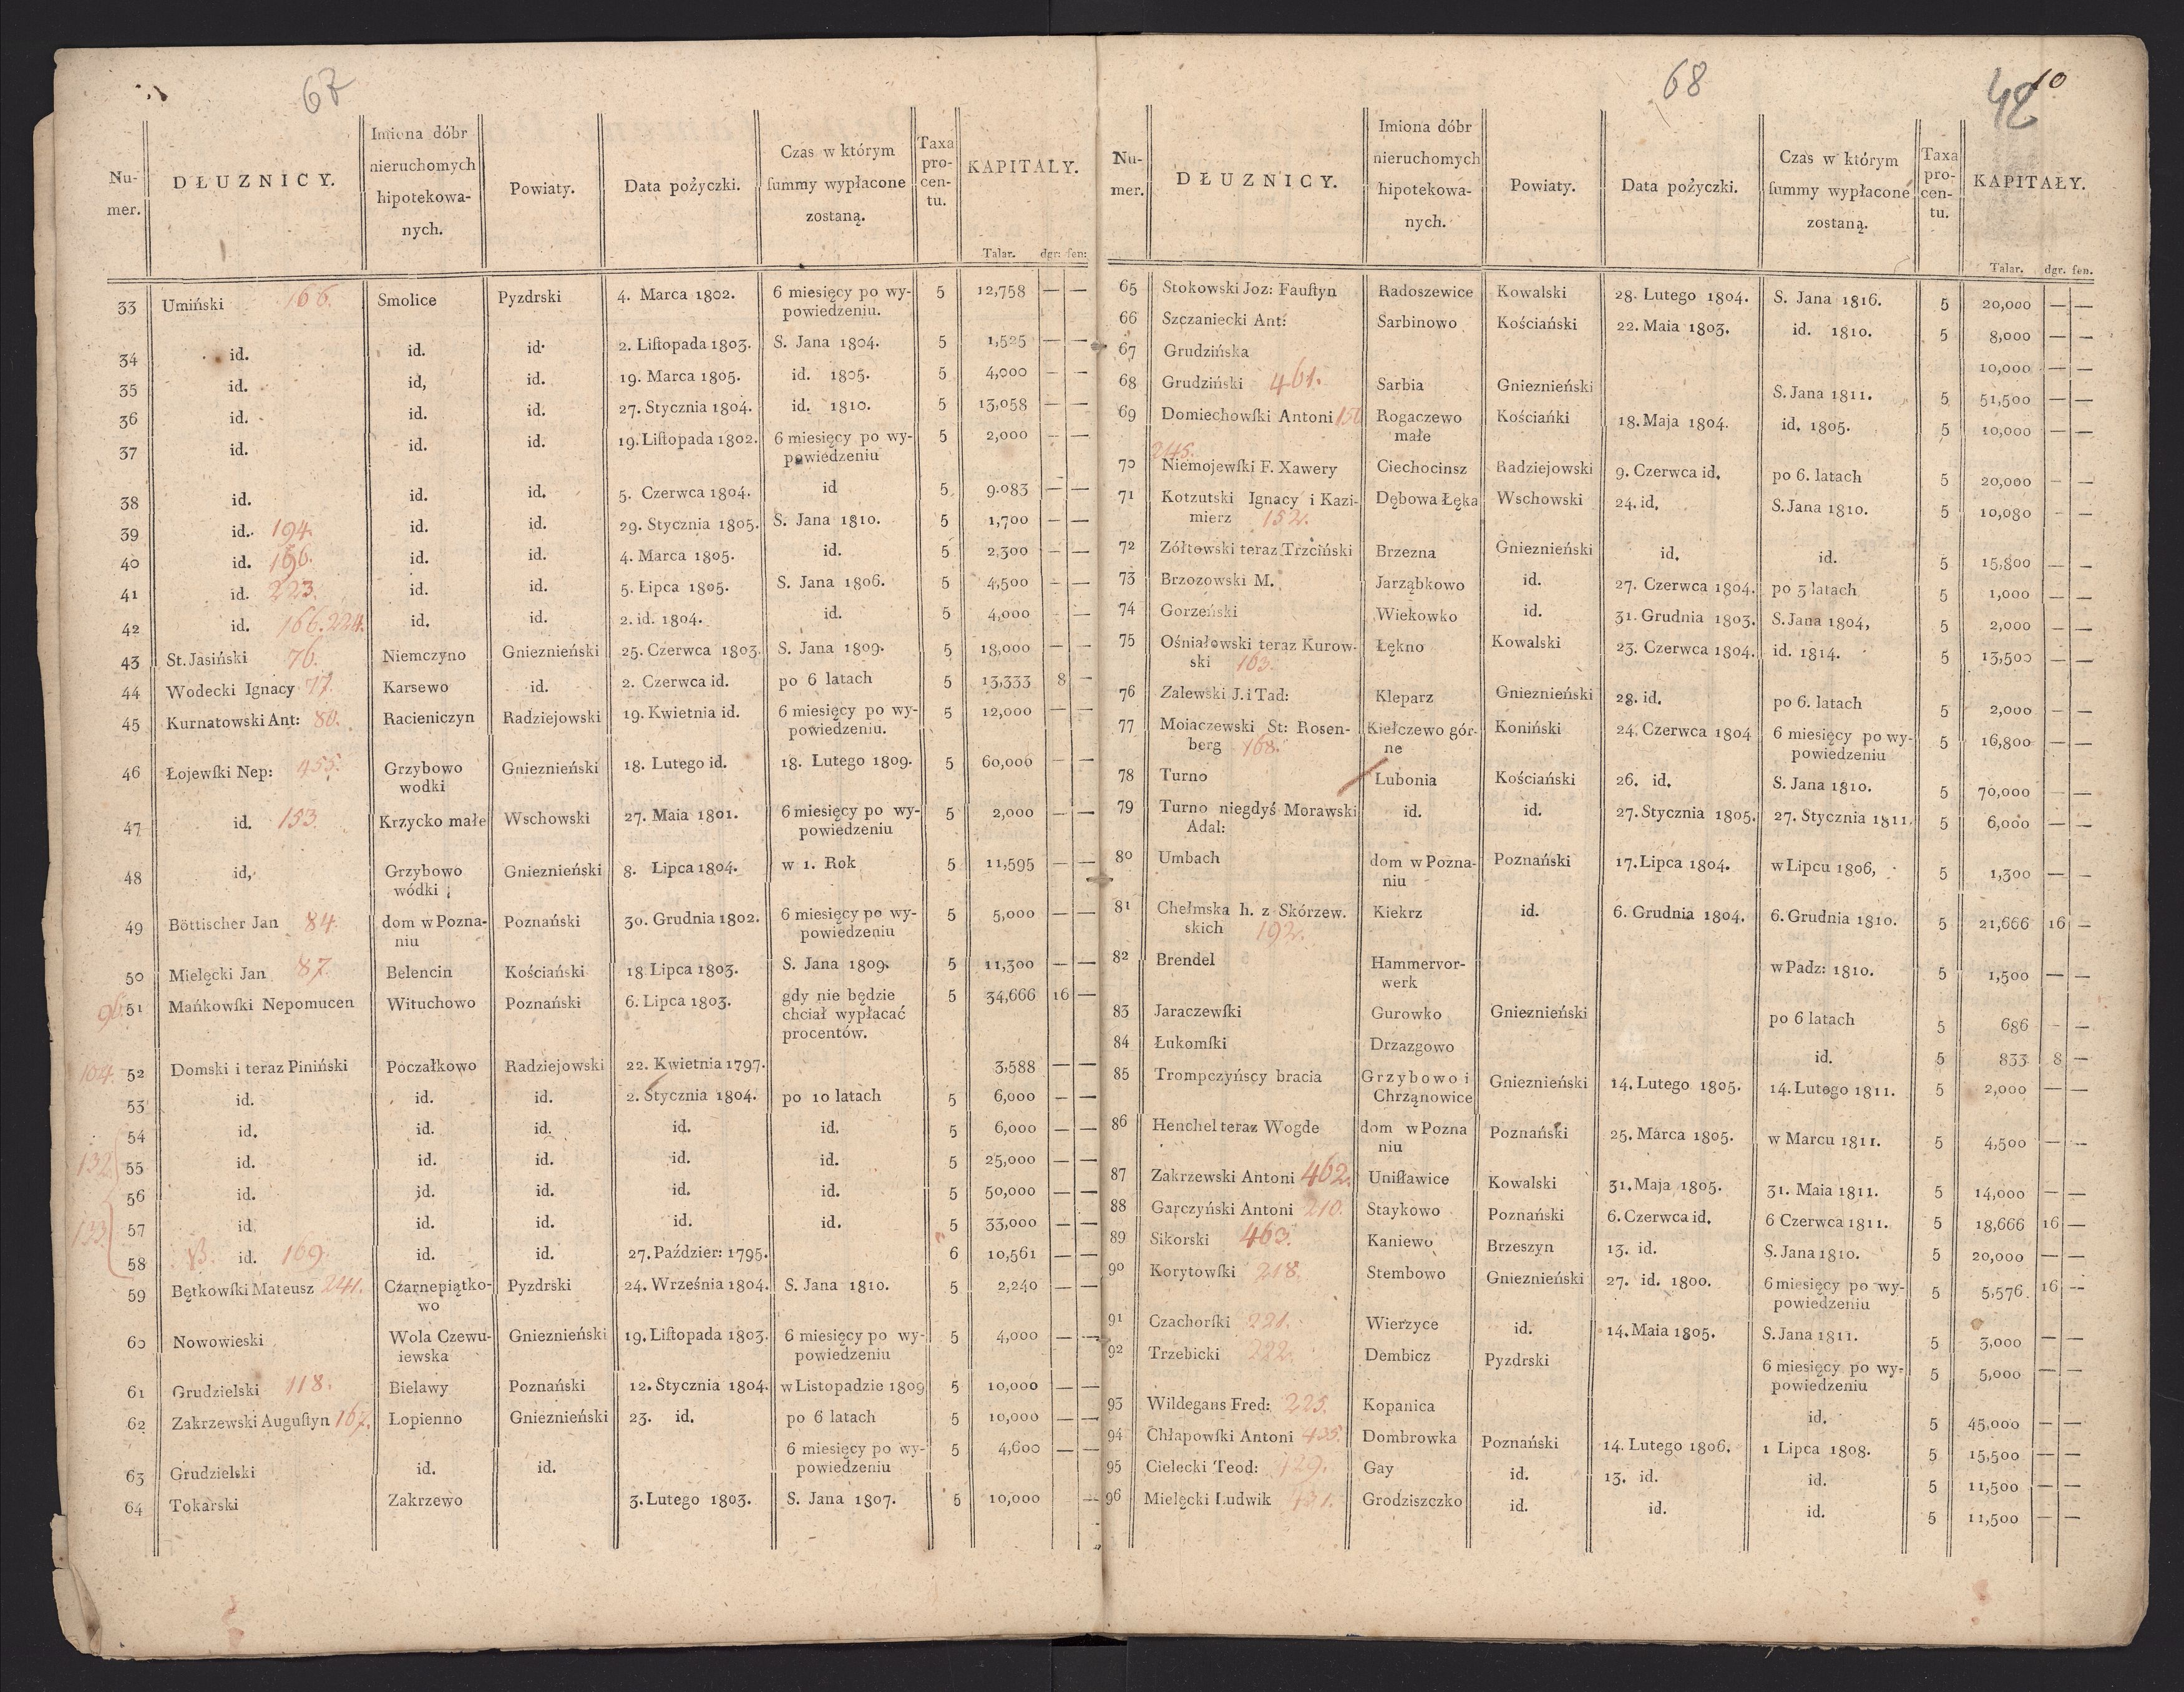 67
Numer. DŁUZNICY. Imiona dóbr nieruchomych hipotekowanych. Powiaty. Data pożyczki. Czas w którym ſummy wypłacone zostaną. Taxa procentu. KAPITALY.
Talar. dgr: fen:
33 Umiński 166. Smolice Pyzdrski 4. Marca 1802. 6 miesięcy po wypowiedzeniu. 5 12,758 — —
34 id. id. id. 2. Liſtopada 1803. S. Jana 1804. 5 1,525 — —
35 id. id, id. 19. Marca 1805. id. 1805. 5 4,000 — —
36 id. id. id. 27. Stycznia 1804. id. 1810. 5 13,058 — —
37 id. id. id. 19. Liſtopada 1802. 6 miesięcy po wypowiedzeniu 5 2,000 — —
38 id. id. id. 5. Czerwca 1804. id 5 9.083 — —
39 id. 194. id. id. 29. Stycznia 1805. S. Jana 1810. 5 1,700 — —
40 id. 196. id. id. 4. Marca 1805. id. 5 2,300 — —
41 id. 223. id. id. 5. Lipca 1805. S. Jana 1806. 5 4,500 — —
42 id. 166. 224. id. id. 2. id. 1804. id. 5 4,000 — —
43 St. Jasiński 76. Niemczyno Gnieznieński 25. Czerwca 1803. S. Jana 1809. 5 18,000 — —
44 Wodecki Ignacy 77. Karsewo id. 2. Czerwca id. po 6 latach 5 13,333 8 —
45 Kurnatowski Ant: 80. Racieniczyn Radziejowski 19. Kwietnia id. 6 miesięcy po wypowiedzeniu. 5 12,000 — —
46 Łojewſki Nep: 455. Grzybowo wodki Gnieznieński 18. Lutego id. 18. Lutego 1809. 5 60,000 — —
47 id. 153. Krzycko małe Wschowski 27. Maia 1801. 6 miesięcy po wypowiedzeniu 5 2,000 — —
48 id, Grzybowo wódki Gnieznieński 8. Lipca 1804. w 1. Rok 5 11,595 — —
49 Böttischer Jan 84. dom w Poznaniu Poznański 30. Grudnia 1802. 6 miesięcy po wypowiedzeniu 5 5,000 — —
50 Mielęcki Jan 87. Belencin Kościański 18 Lipca 1803. S. Jana 1809. 5 11,300 — —
96. 51 Mańkowſki Nepomucen Wituchowo Poznański 6. Lipca 1803. gdy nie będzie chciał wypłacać procentów. 5 34,666 16 —
104. 52 Domski i teraz Piniński Poczałkowo Radziejowski 22. Kwietnia 1797. 3,588 — —
53 id. id. id. 2. Stycznia 1804. po 10 latach 5 6,000 — —
54 id. id. id. id. id. 5 6,000 — —
132 55 id. id. id. id. id. 5 25,000 — —
56 id. id. id. id. id. 5 50,000 — —
133 57 id. id. id. id. id. 5 33,000 — —
58 id. 169. id. id. 27. Paździer: 1795. 6 10,561 — —
59 Bętkowſki Mateusz 241. Czarnepiątkowo Pyzdrski 24. Września 1804. S. Jana 1810. 5 2,240 — —
60 Nowowieski Wola Czewuiewska Gnieznieński 19. Liſtopada 1803. 6 miesięcy po wypowiedzeniu 5 4,000 — —
61 Grudzielski 118. Bielawy Poznański 12. Stycznia 1804. w Listopadzie 1809 5 10,000 — —
62 Zakrzewski Auguſtyn 167. Lopienno Gnieznieński 23. id. po 6 latach 5 10,000 — —
63 Grudzielski id. id. 6 miesięcy po wypowiedzeniu 5 4,600 — —
64 Tokarski Zakrzewo 3. Lutego 1803. S. Jana 1807. 5 10,000 —
68
42 10
Numer. DŁUZNICY. Imiona dóbr nieruchomych hipotekowanych. Powiaty. Data pożyczki. Czas w którym ſummy wypłacone zostaną. Taxa procentu. KAPITAŁY.
Talar. dgr. fen.
65 Stokowski Joz: Fauſtyn Radoszewice Kowalski 28. Lutego 1804. S. Jana 1816. 5 20,000 — —
66 Szczaniecki Ant: Sarbinowo Kościański 22. Maia 1803. id. 1810. 5 8,000 — —
67 Grudzińska 10,000 — —
68 Grudziński 461. Sarbia Gnieznieński S. Jana 1811. 5 51,500 — —
69 Domiechowſki Antoni 150 Rogaczewo małe Kościańki 18. Maja 1804. id. 1805. 5 10,000 — —
245.
70 Niemojewſki F. Xawery Ciechocinsz Radziejowski 9. Czerwca id. po 6. latach 5 20,000 — —
71 Kotzutski Ignacy i Kazimierz 152. Dębowa Łęka Wschowski 24. id. S. Jana 1810. 5 10,080 — —
72 Zółtowski teraz Trzciński Brzezna Gnieznieński id. id. 5 15,800 — —
73 Brzozowski M. Jarząbkowo id. 27. Czerwca 1804. po 3 latach 5 1,000 — —
74 Gorzeński Wiekowko id. 31. Grudnia 1803. S. Jana 1804, 5 2,000 — —
75 Ośniałowski teraz Kurowski 163. Łękno Kowalski 23. Czerwca 1804. id. 1814. 5 13,500 — —
76 Zalewski J. i Tad: Kleparz Gnieznieński 28. id. po 6. latach 5 2,000 — —
77 Moiaczewski St: Rosenberg 168. Kiełczewo górne Koniński 24. Czerwca 1804 6 miesięcy po wypowiedzeniu 5 16,800 — —
78 Turno Lubonia Kościański 26. id. S. Jana 1810. 5 70,000 — —
79 Turno niegdyś Morawski Adal: id. id. 27. Stycznia 1805. 27. Stycznia 1811. 5 6,000 — —
80 Umbach dom w Poznaniu Poznański 17. Lipca 1804. w Lipcu 1806, 5 1,300 — —
81 Chełmska h. z Skórzewskich 192. Kiekrz id. 6. Grudnia 1804. 6. Grudnia 1810. 5 21,666 16 —
82 Brendel Hammervorwerk w Padz: 1810. 5 1,500 — —
83 Jaraczewſki Gurowko Gnieznieński po 6 latach 5 686 — —
84 Łukomſki Drzazgowo id. 5 833 8 —
85 Trompczyńscy bracia Grzybowo i Chrząnowice Gnieznieński 14. Lutego 1805. 14. Lutego 1811. 5 2,000 — —
86 Henchel teraz Wogde dom w Poznaniu Poznański 25. Marca 1805. w Marcu 1811. 5 4,500 — —
87 Zakrzewski Antoni 462. Uniſławice Kowalski 31. Maja 1805. 31. Maia 1811. 5 14,000 — —
88 Garczyński Antoni 210. Staykowo Poznański 6. Czerwca id. 6 Czerwca 1811. 5 18,666 16 —
89 Sikorski 463. Kaniewo Brzeszyn 13. id. S. Jana 1810. 5 20,000 — —
90 Korytowſki 218. Stembowo Gnieznieński 27. id. 1800. 6 miesięcy po wypowiedzeniu 5 5,576 16 —
91 Czachorſki 221. Wierzyce id. 14. Maia 1805. S. Jana 1811. 5 3,000 — —
92 Trzebicki 222. Dembicz Pyzdrski 6 miesięcy po wypowiedzeniu 5 5,000 — —
93 Wildegans Fred: 225. Kopanica id. 5 45,000 — —
94 Chłapowſki Antoni 435. Dombrowka Poznański 14. Lutego 1806. 1 Lipca 1808. 5 15,500 — —
95 Cielecki Teod: 129. Gay id. 13. id. id. 5 11,500 — —
96 Mielęcki Ludwik 431. Grodziszczko id. id. id. 5 11,500 — —